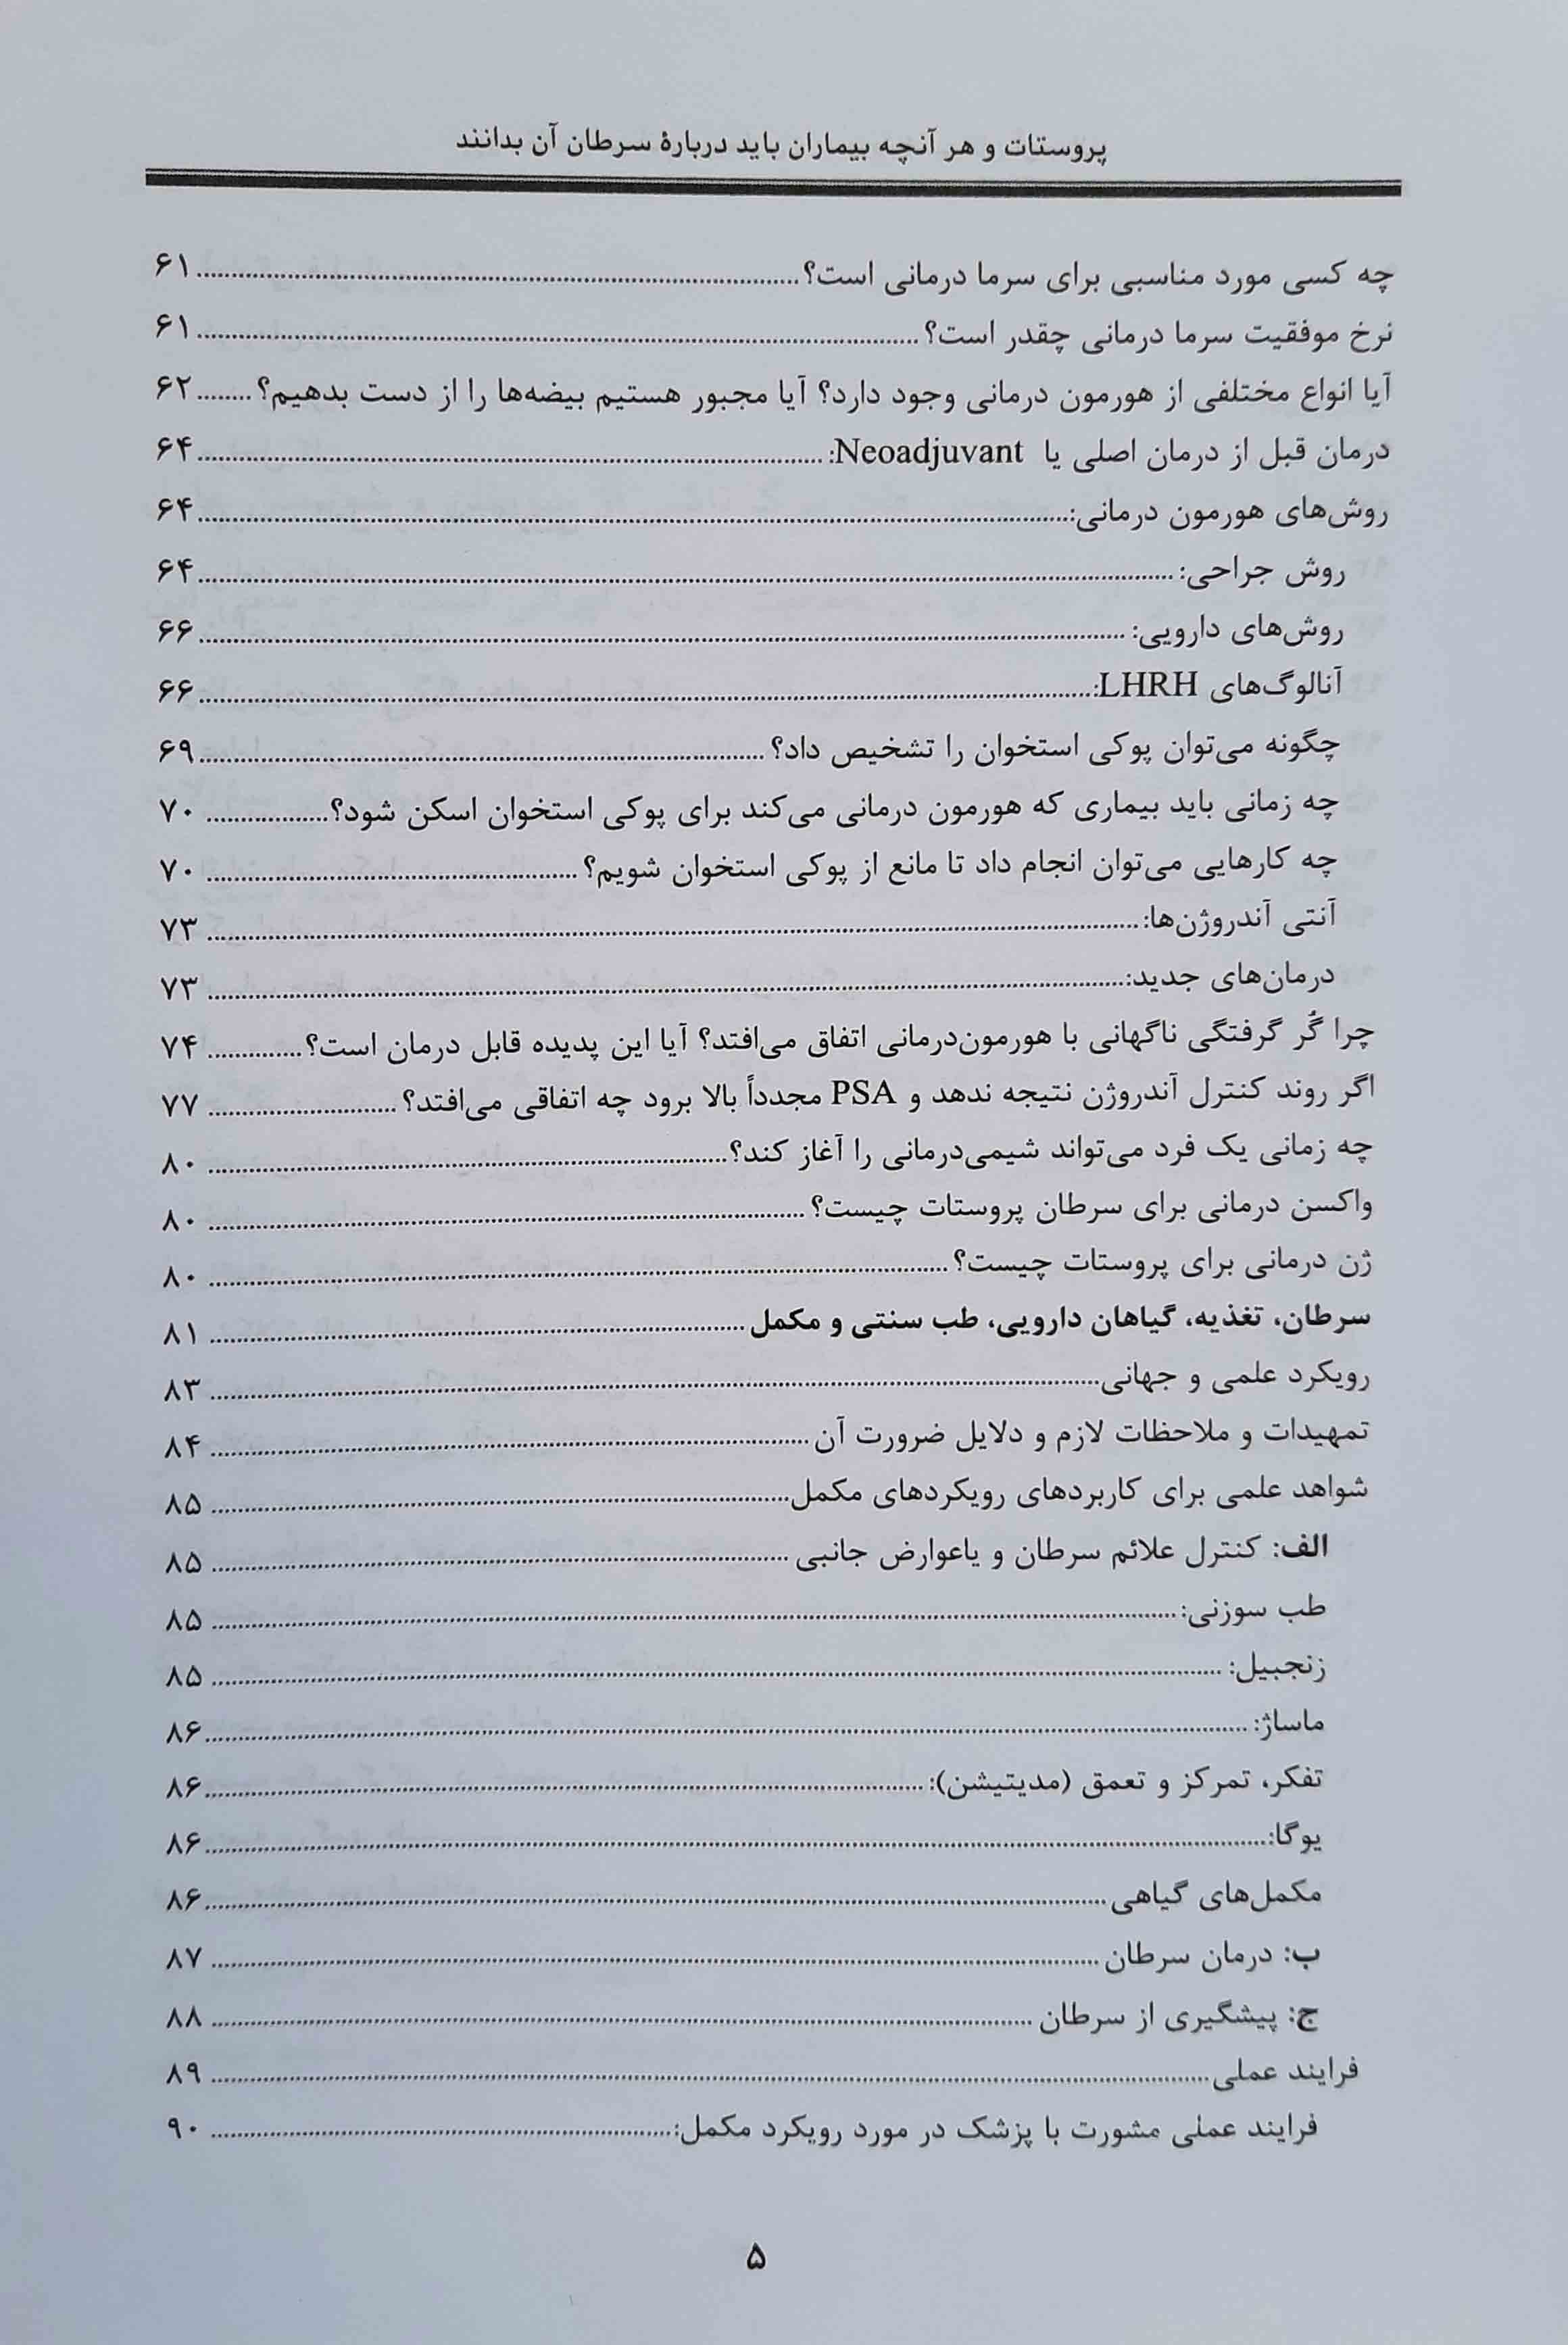 پروستات و هر آنچه بیماران باید دربارهٔ سرطان آن بدانند
چه کسی مورد مناسبی برای سرما درمانی است؟ ۶۱
نرخ موفقیت سرما درمانی چقدر است؟ ۶۱
آیا انواع مختلفی از هورمون درمانی وجود دارد؟ آیا مجبور هستیم بیضه‌ها را از دست بدهیم؟ ۶۲
درمان قبل از درمان اصلی یا Neoadjuvant: ۶۴
روش‌های هورمون درمانی: ۶۴
روش جراحی: ۶۴
روش‌های دارویی: ۶۶
آنالوگ‌های LHRH: ۶۶
چگونه می‌توان پوکی استخوان را تشخیص داد؟ ۶۹
چه زمانی باید بیماری که هورمون درمانی می‌کند برای پوکی استخوان اسکن شود؟ ۷۰
چه کارهایی می‌توان انجام داد تا مانع از پوکی استخوان شویم؟ ۷۰
آنتی آندروژن‌ها: ۷۳
درمان‌های جدید: ۷۳
چرا گُر گرفتگی ناگهانی با هورمون‌درمانی اتفاق می‌افتد؟ آیا این پدیده قابل درمان است؟ ۷۴
اگر روند کنترل آندروژن نتیجه ندهد و PSA مجدداً بالا برود چه اتفاقی می‌افتد؟ ۷۷
چه زمانی یک فرد می‌تواند شیمی‌درمانی را آغاز کند؟ ۸۰
واکسن درمانی برای سرطان پروستات چیست؟ ۸۰
ژن درمانی برای پروستات چیست؟ ۸۰
سرطان، تغذیه، گیاهان دارویی، طب سنتی و مکمل ۸۱
رویکرد علمی و جهانی ۸۳
تمهیدات و ملاحظات لازم و دلایل ضرورت آن ۸۴
شواهد علمی برای کاربردهای رویکردهای مکمل ۸۵
الف: کنترل علائم سرطان و یاعوارض جانبی ۸۵
طب سوزنی: ۸۵
زنجبیل: ۸۵
ماساژ: ۸۶
تفکر، تمرکز و تعمق (مدیتیشن): ۸۶
یوگا: ۸۶
مکمل‌های گیاهی ۸۶
ب: درمان سرطان ۸۷
ج: پیشگیری از سرطان ۸۸
فرایند عملی ۸۹
فرایند عملی مشورت با پزشک در مورد رویکرد مکمل: ۹۰
۵